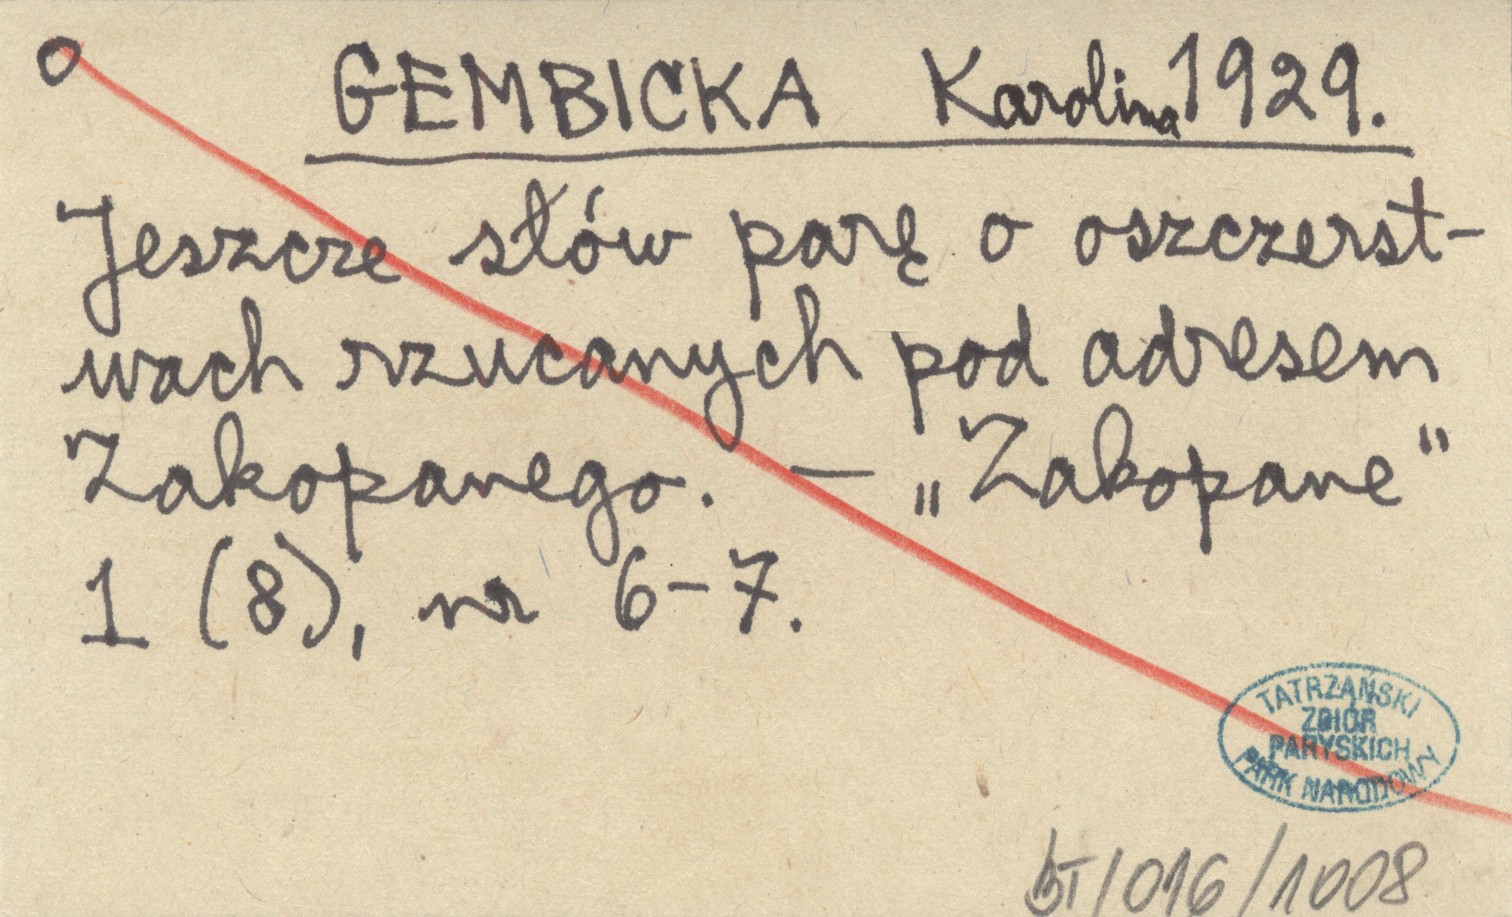 o GEMBICKA Karolina 1929.
Jeszcze słów parę o oszczerst-
wach rzucanych pod adresem
Zakopanego. — „Zakopane"
1 (8), nr 6-7.
TATRZAŃSKI
ZBIÓR
PARYSKICH
PARK NARODOWY
/016/1008